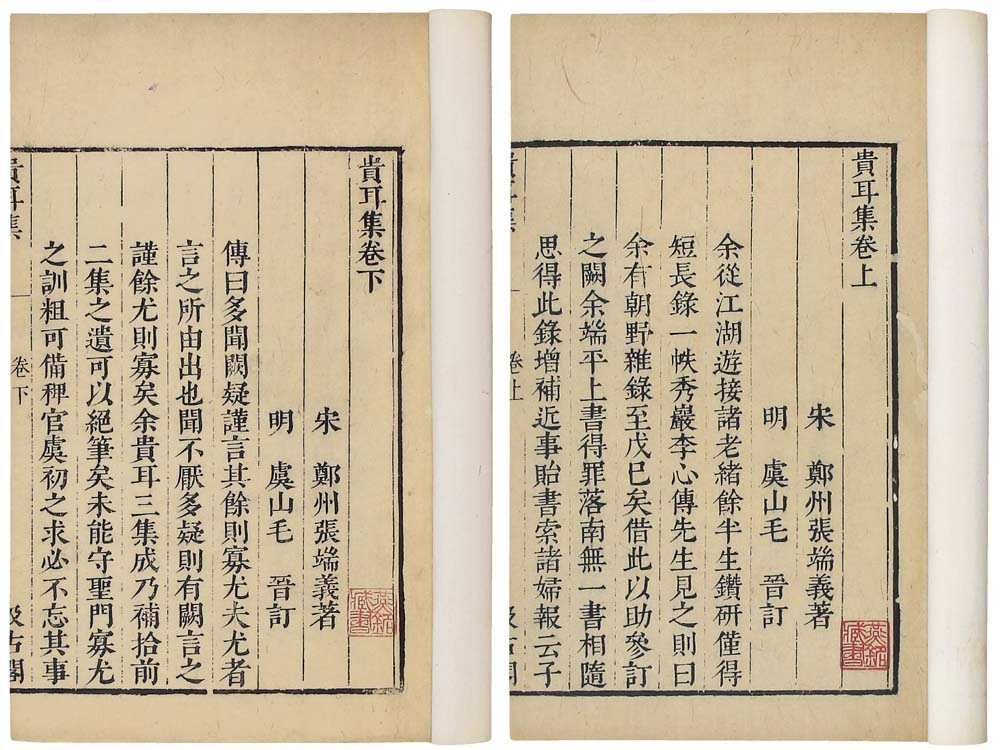 貴耳集卷上
宋　鄭州張端義著
明　虞山毛　晉訂
余從江湖遊接諸老緒餘半生鑽研僅得
短長錄一帙秀巖李心傳先生見之則曰
余有朝野雜錄至戊巳矣借此以助參訂
之闕余端平上書得罪落南無一書相隨
思得此錄增補近事貽書索諸婦報云子
貴耳集　卷上　汲古閣
燕銘臧書
貴耳集卷下
宋　鄭州張端義著
明　虞山毛　晉訂
傳曰多聞闕疑謹言其餘則寡尤夫尤者
言之所由出也聞不厭多疑則有闕言之
謹餘尤則寡矣余貴耳三集成乃補拾前
二集之遺可以絕筆矣未能守聖門寡尤
之訓粗可備稗官虞初之求必不忘其事
貴耳集　卷下　汲古閣
燕銘臧書